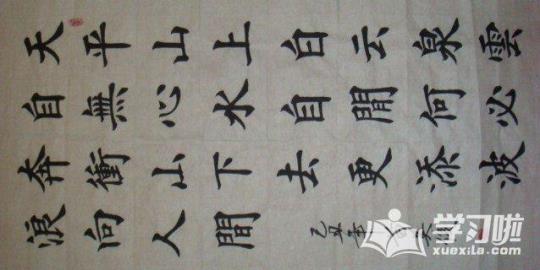 天平山上白云泉雲
自無心水自閒何必
奔衝山下去更添波
浪向人間
己丑年
学习啦
xuexila.com